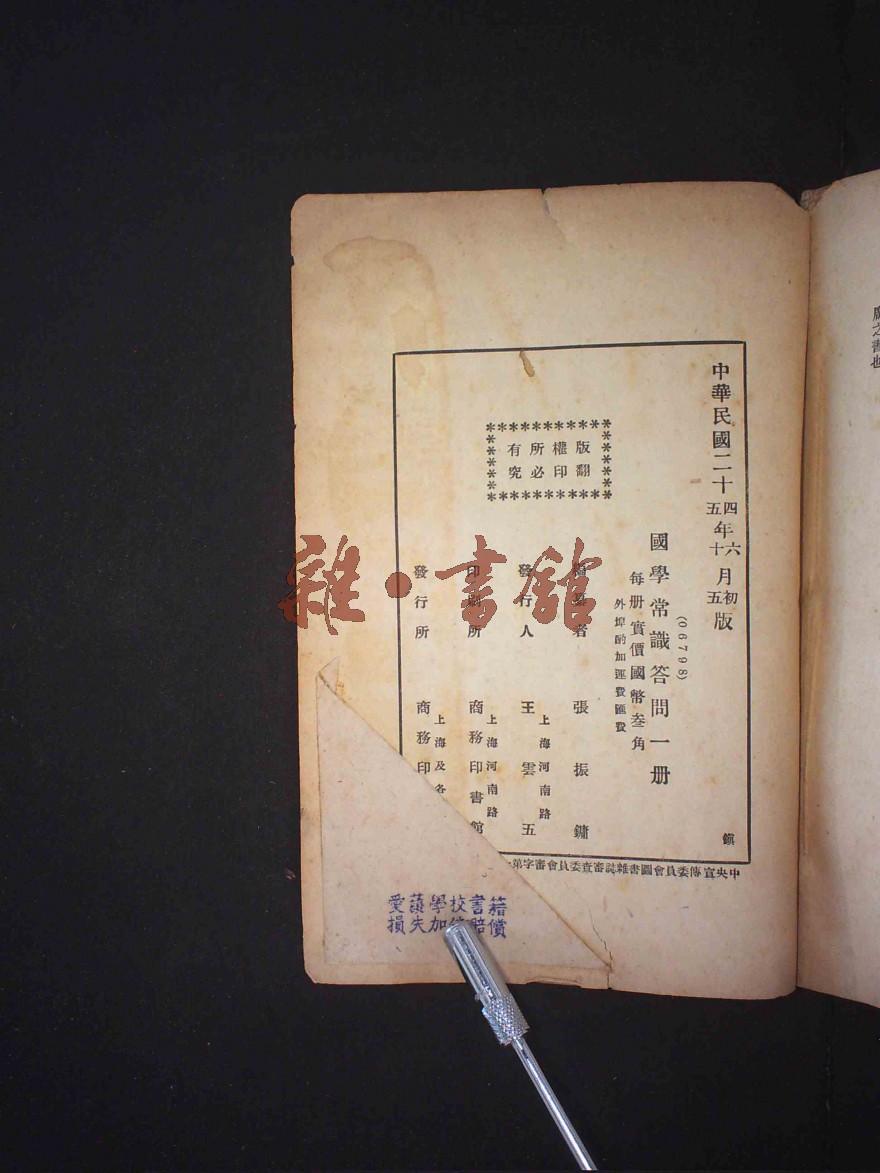 中華民國二十四年六月初版
五年十五
(06798)
國學常識答問一册
每册實價國幣叁角
外埠酌加運費匯費
版權所有
翻印必究
編纂者 張振鏞
發行人 王雲五
上海河南路
印刷所 商務印書館
上海河南路
發行所 商務印
上海及各
鎮
中央宣傳委員會圖書雜誌審查委員會審字第
愛護學校書籍
損失加倍賠償
雜·書館
腐之書也